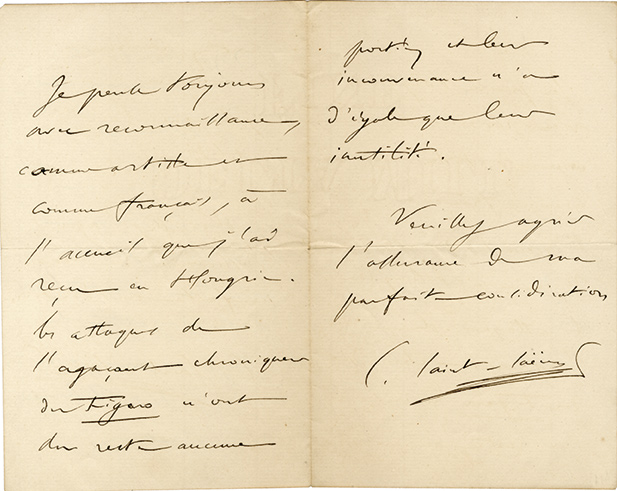 Je pense toujours
avec reconnaissance,
comme artiste et
comme français, à
l'accueil que j'ai
reçu en Hongrie.
Les attaques de
l'agaçant chroniqueur
du Figaro n'ont
du reste aucune
portée et leur
inconvenance n'a
d'égale que leur
inutilité.
Veuillez agréer
l'assurance de ma
parfaite considération
C. Saint-Saëns